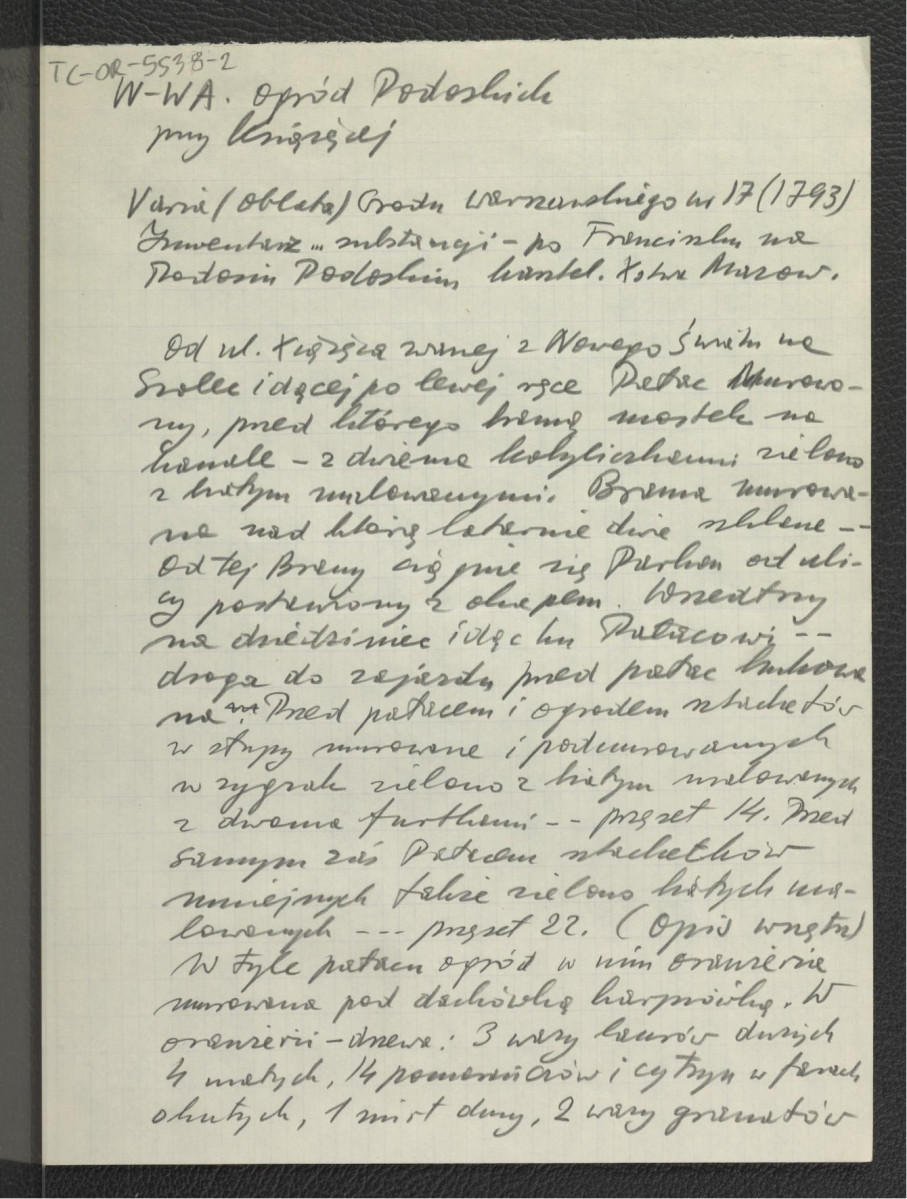 TC-OR-5538-2
W-WA. Ogród Podoskich
przy Książęcej
Varia (Oblata) Grodu Warszawskiego nr 17 (1793)
Inwentarz ... substancji - po Franciszku na
Radosin Podoskim kasztel. Xstwa Mazow.
Od ul. Xiążęcą zwanej z Nowego Światu na
Szolec idącej po lewej ręce Pałac Murowa-
ny, przed którego bramą mostek na
kanale - z dwiema kobyliczkami zielono
z białym malowanymi. Brama murowa-
na nad którą latarnie dwie szklane --
od tej Bramy ciągnie się Parkan od uli-
cy postawiony z okapem. Wszedłszy
na dziedziniec idąc ku Pałacowi --
droga do zajazdu przed pałac brukowa
na. Przed pałacem i ogrodem sztachetów
w słupy murowane i podmurowanych
w zygzak zielono z białym malowanych
z dwoma furtkami -- przęseł 14. Przed
samym zaś Pałacem sztachetków
mniejszych także zielono białych ma-
lowanych --- przęseł 22. (Opis wnętrz)
W tyle pałacu ogród w nim oranżeria
murowana pod dachówką karpiówką. W
oranżerii - drzewa: 3 wazy laurów dużych
4 małych, 14 pomarańczów i cytryn w fasach
okutych, 1 mirt duży, 2 wazy granatów